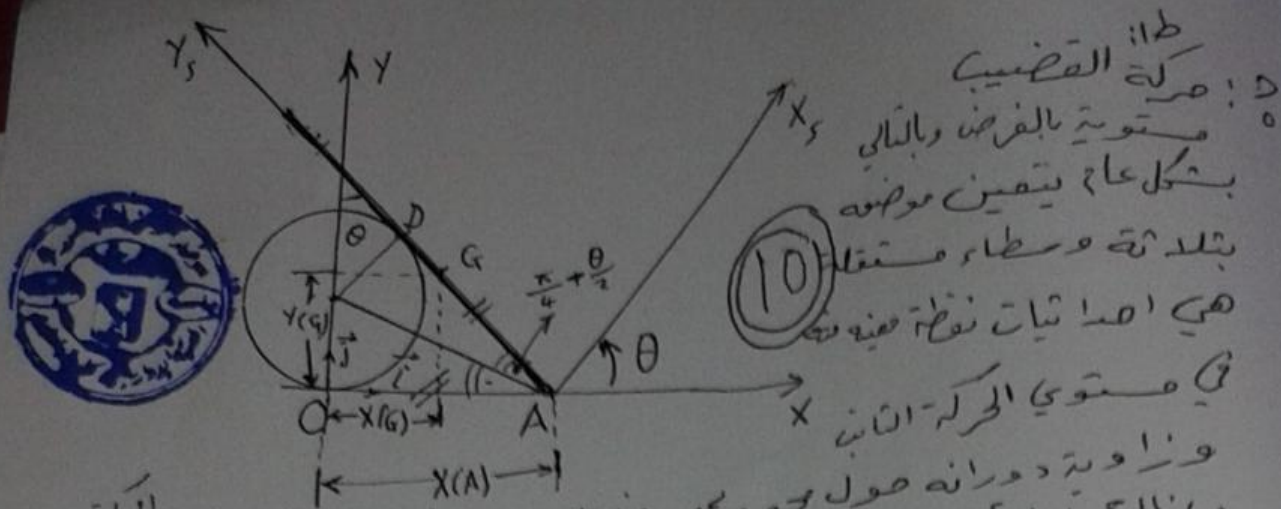 طا:
حركة القضيب
مستوية بالفرض وبالتالي
بشكل عام يتعين موضعه
بثلاثة وسطاء مستقلة
هي احداثيات نقطة معينة منه
في مستوي الحركة الثابت
وزاوية دورانه حول
10
Ys
Y
Xs
θ
D
G
π/4 + θ/2
Y(G)
j
i
θ
O
X(G)
A
X
X(A)